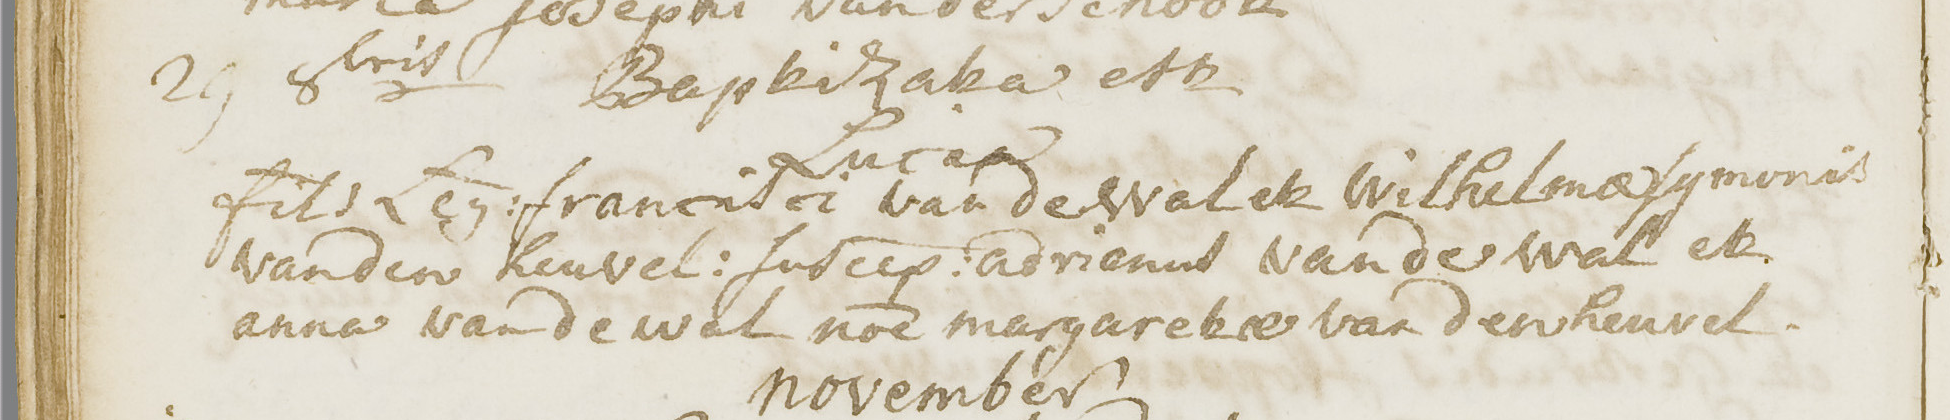 maria Josephi vanderschoot
29 8bris Baptizata est
Lucia
filia Leg: francisci van de Wal et Wilhelmæ symonis
vanden heuvel: suscep: adrianus van de wal et
anna van de wal noe margaretæ van den heuvel.
november